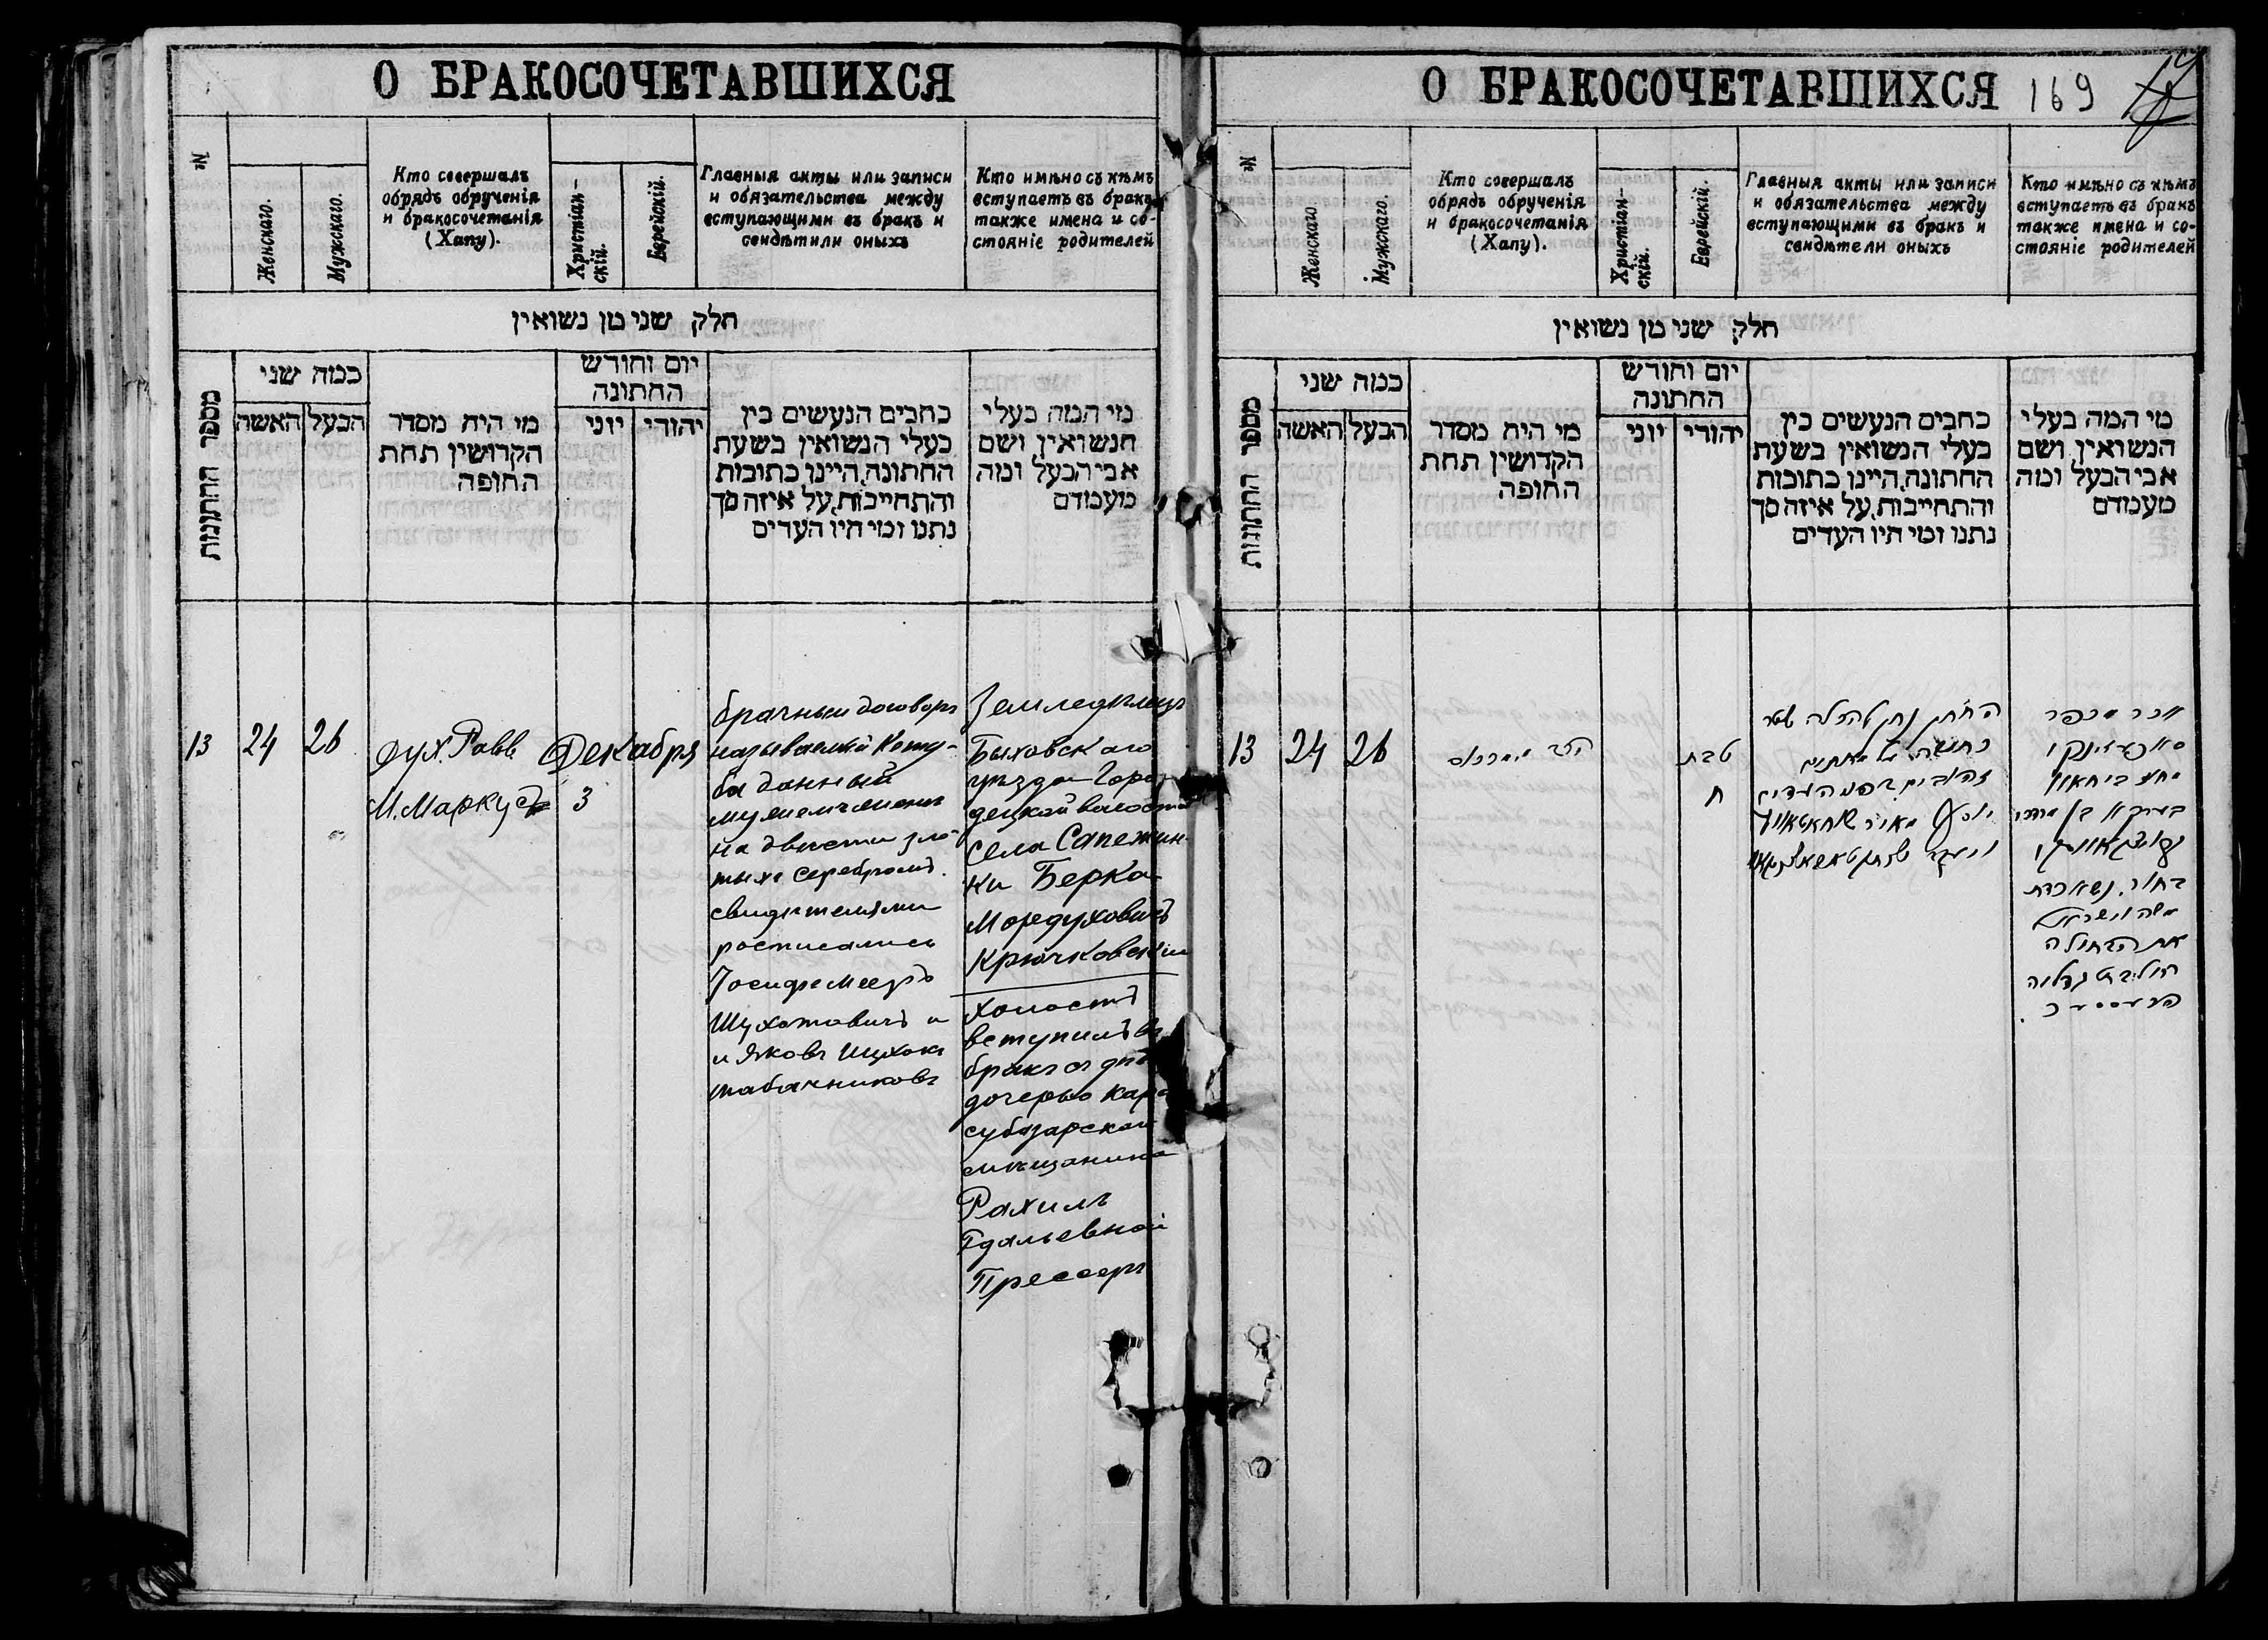 О БРАКОСОЧЕТАВШИХСЯ
№
Женскаго.
Мужскаго.
Кто совершалъ
обрядъ обрученія
и бракосочетанія
(Хапу).
Христіан-
скій.
Еврейскій.
Главныя акты или записи
и обязательства между
вступающими въ бракъ и
свидѣтили оныхъ
Кто имѣно съ кѣмъ
вступаетъ въ бракъ
также имена и со-
стояніе родителей
חלק שני מן נשואין
מספר החתונות
כמה שני
האשה
הבעל
מי היה מסדר
הקדושין תחת
החופה
יום וחודש
החתונה
יוני
יהודי
כתבים הנעשים בין
בעלי הנשואין בשעת
החתונה, היינו כתובות
והתחייבות, על איזה סך
נתנו ומי היו העדים
מי המה בעלי
הנשואין ושם
אבי הבעל ומה
מעמדם
13
24
26
дух. Равв.
М. Маркусъ
Декабря
3
брачный договоръ
называемый Кету-
ба данный
на двѣсти зло-
тыхъ серебромъ.
свидѣтелями
росписались
Іосифъ Мееръ
Шухатовичъ и
и Яковъ Шухат
табачниковъ
Земледѣлецъ
Быховскаго
уѣзда Горо-
децкой волости
села Сапежин-
ки Берка
Мордуховичъ
Крючковскій
холостъ
вступилъ въ
бракъ съ дѣв
дочерью кара
субазарскаго
мѣщанина
Рахиль
Гдальевной
Прессеръ
О БРАКОСОЧЕТАВШИХСЯ
169
№
Женскаго
Мужскаго.
Кто совершалъ
обрядъ обрученія
и бракосочетанія
(Хапу).
Христіан-
скій.
Еврейскій.
Главныя акты или записи
и обязательства между
вступающими въ бракъ и
свидѣтели оныхъ
Кто имѣно съ кѣмъ
вступаетъ въ бракъ
также имена и со-
стояніе родителей
חלק שני מן נשואין
מספר החתונות
כמה שני
האשה
הבעל
מי היה מסדר
הקדושין תחת
החופה
יום וחודש
החתונה
יוני
יהודי
כתבים הנעשים בין
בעלי הנשואין בשעת
החתונה, היינו כתובות
והתחייבות, על איזה סך
נתנו ומי היו העדים
מי המה בעלי
הנשואין ושם
אבי הבעל ומה
מעמדם
13
24
26
הרב מארכוס
טבת
ח
החתן נתן להכלה שטר
כתובה על מאתים
זהובים בפני העדים
יוסף מאיר
ויעקב
אכר מכפר
בערקא בן מרדכי
בחור, נשא
את הבתולה
גדליה